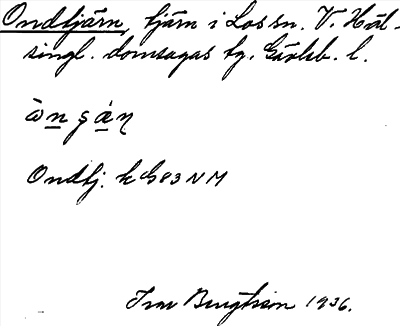 Ondtjärn, tjärn i Los sn. V. Häl-
singl. domsagas tg. Gävleb. l.
Ondtj. k G 83 N M
Ivar Bengtsson 1936.